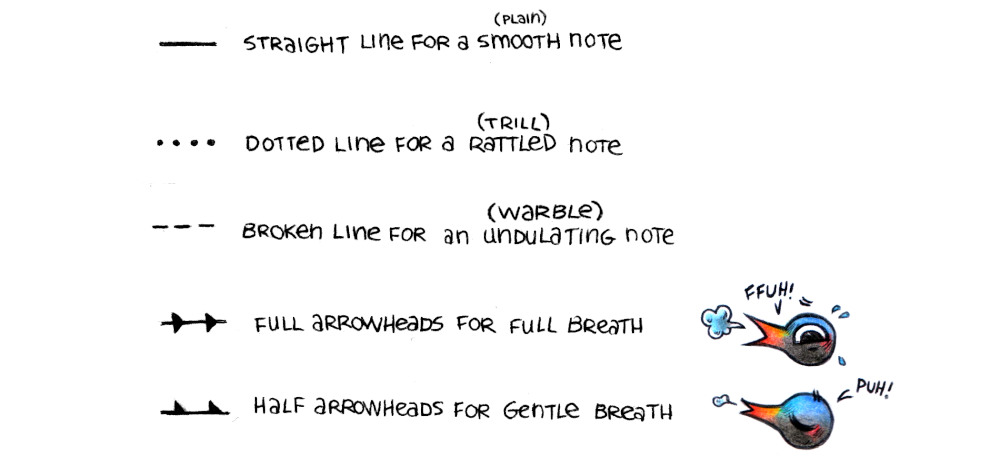 (PLain)
STRaIGHT Line FOR a SmOOTH nOTe
(TRILL)
DOTTeD Line FOR a RaTTLeD nOTe
(WaRBLe)
BROKen Line FOR an UnDULaTInG nOTe
FFUH!
FULL aRROWHeaDS FOR FULL BReaTH
PUH!
HaLF aRROWHeaDS FOR GenTLe BReaTH